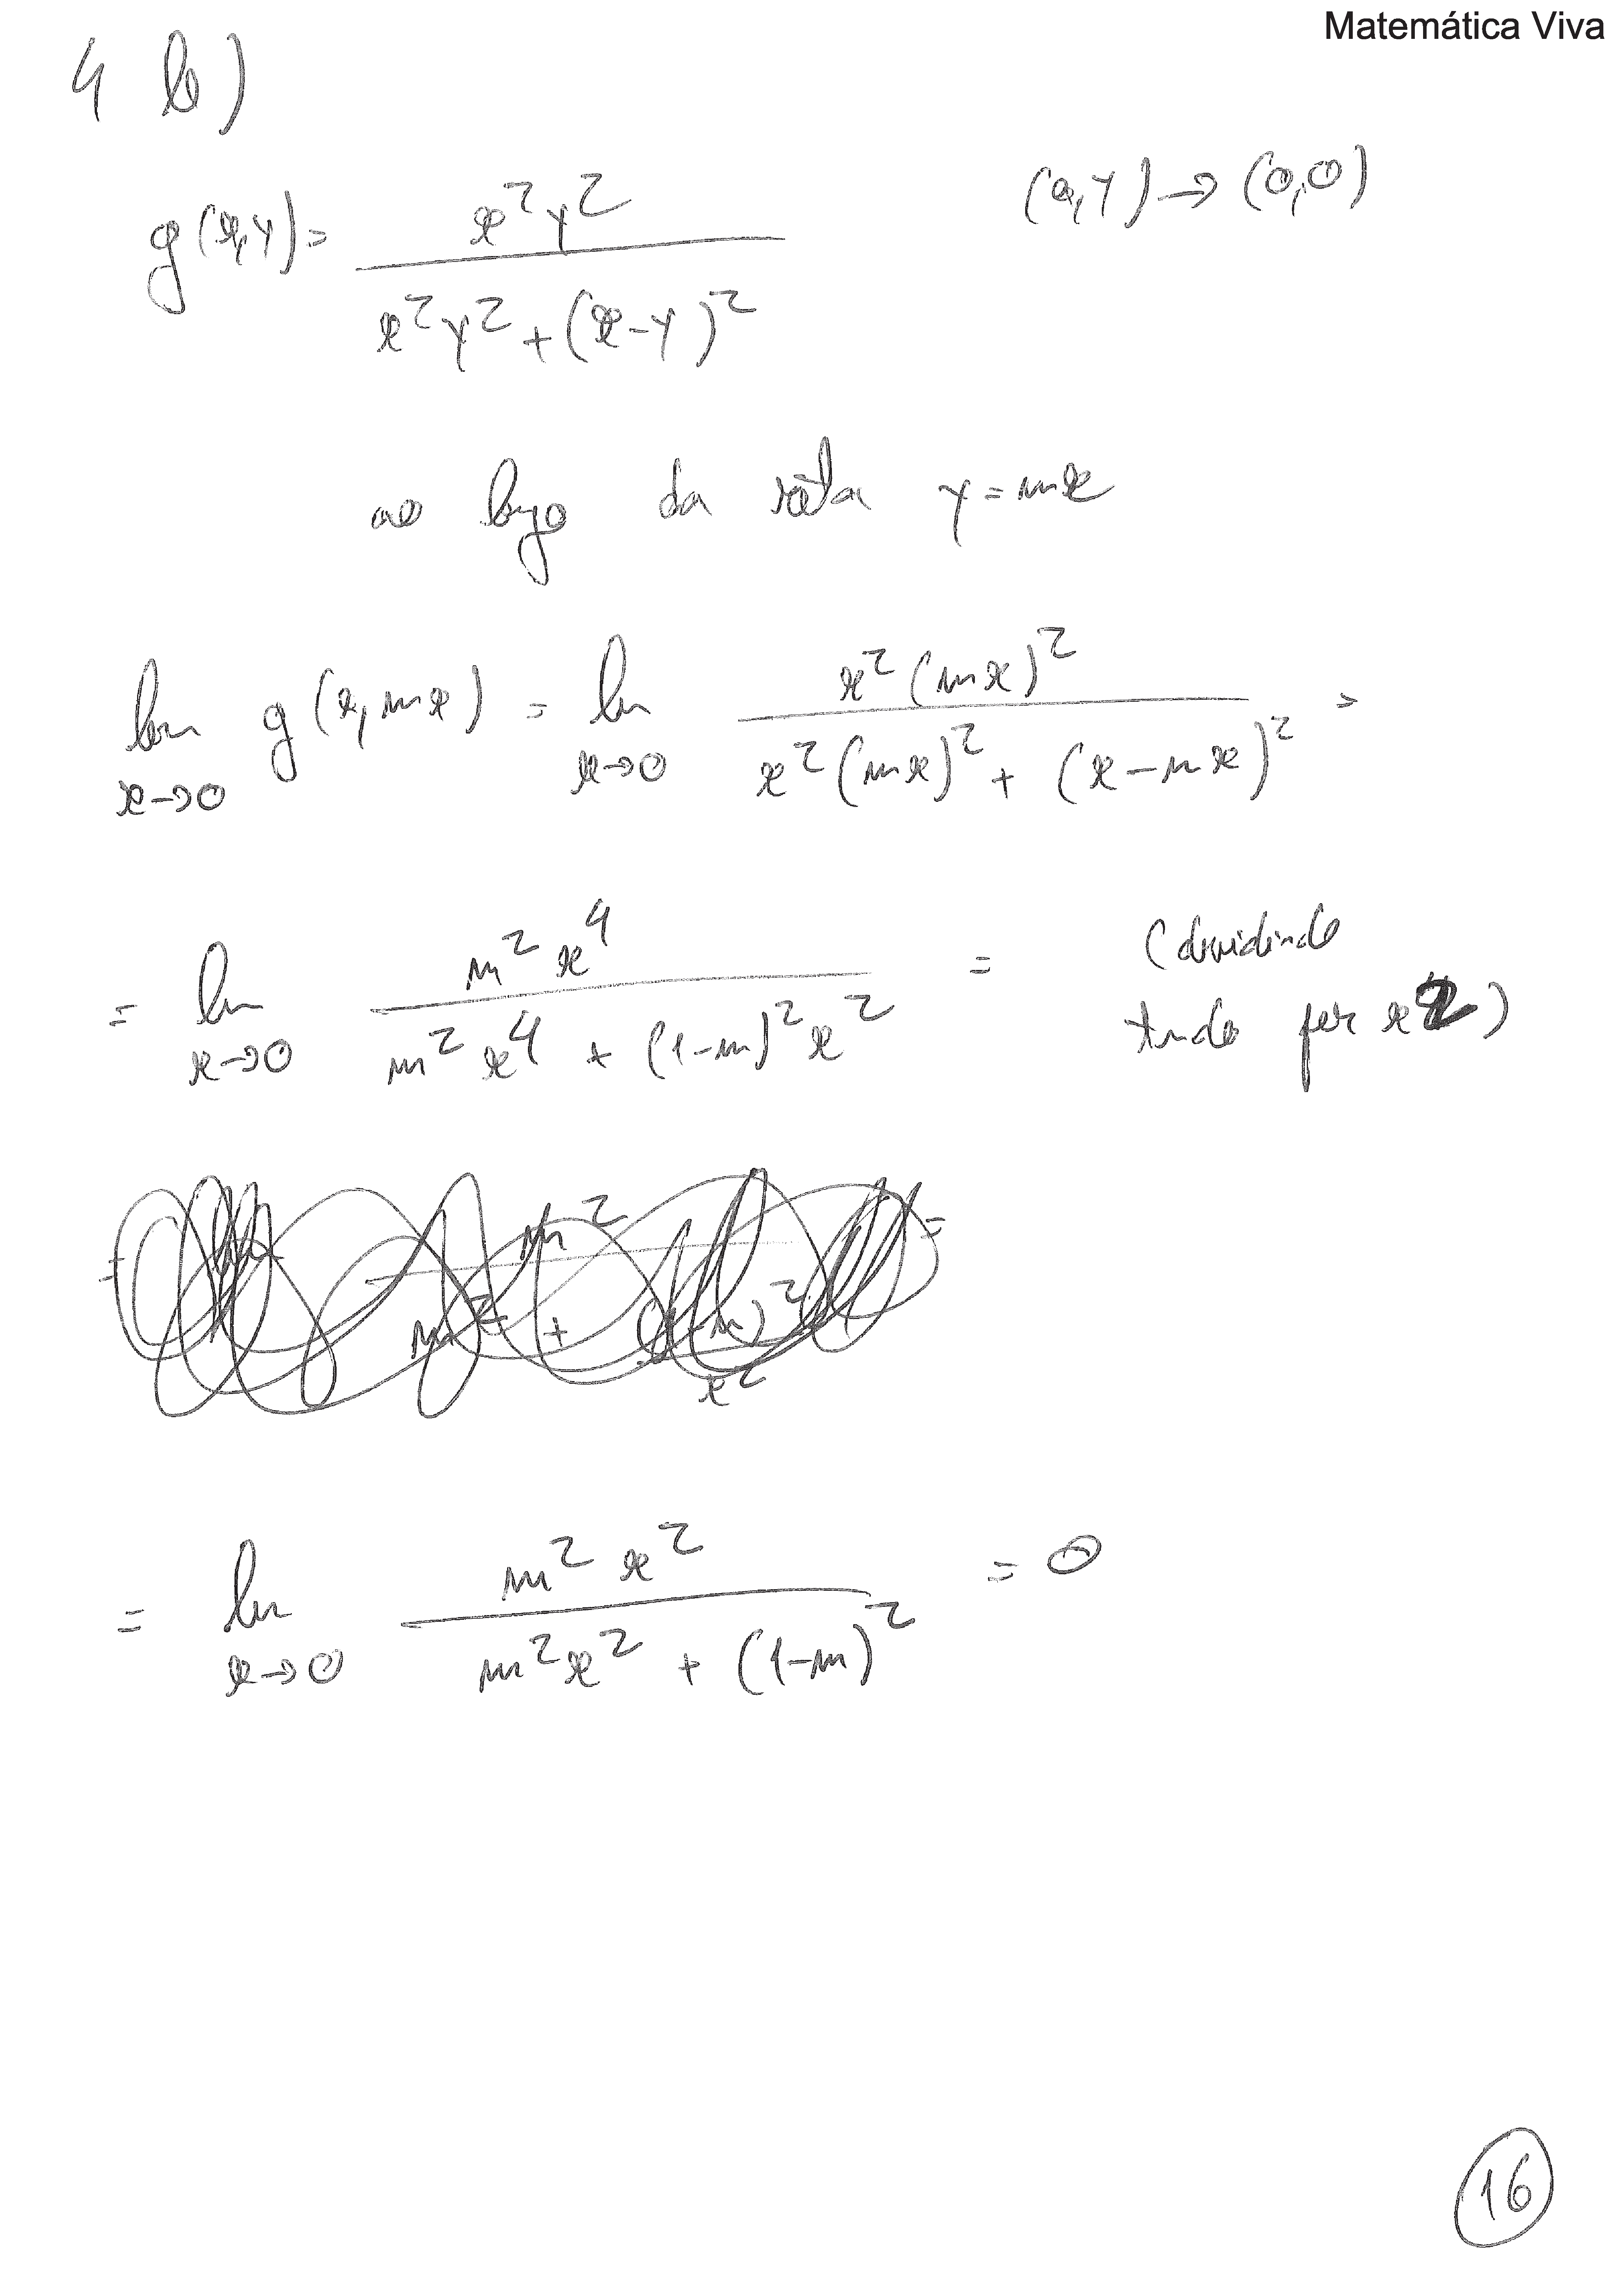 Matemática Viva
4 b)
g(x,y) = x²y² / (x²y² + (x-y)²)   (x,y) → (0,0)
ao longo da reta y = mx
lim x→0 g(x,mx) = lim x→0 x²(mx)² / (x²(mx)² + (x-mx)²) =
= lim x→0 m²x⁴ / (m²x⁴ + (1-m)²x²) = (dividindo
tudo por x²)
= lim x→0 m²x² / (m²x² + (1-m)²) = 0
16